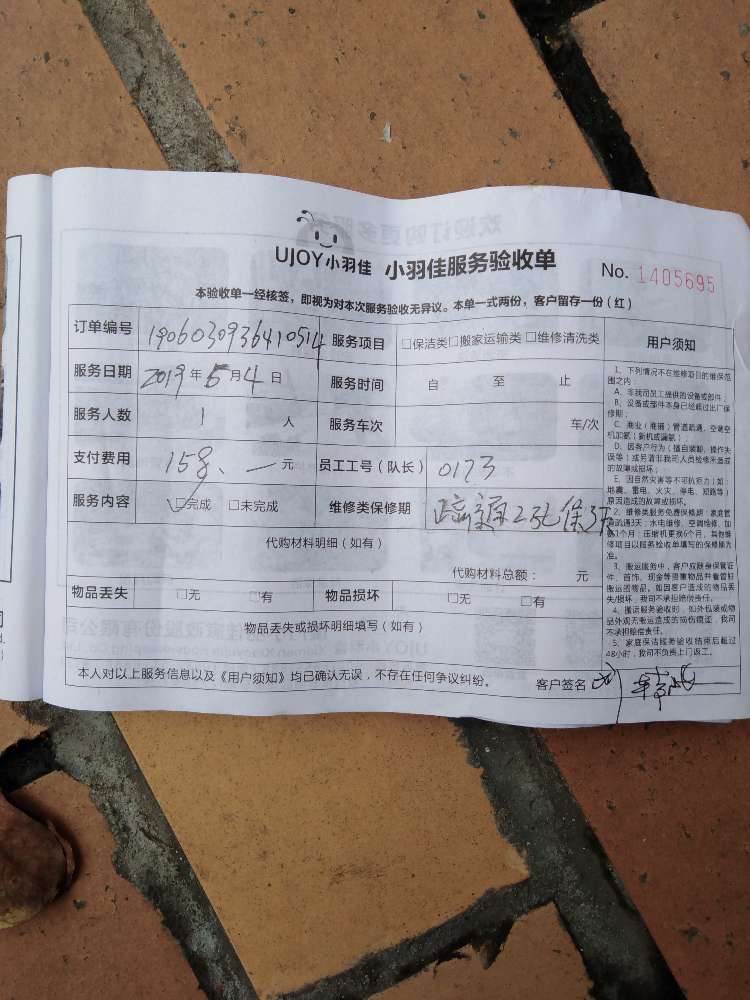 UJOY小羽佳 小羽佳服务验收单 No. 1405695
本验收单一经核签，即视为对本次服务验收无异议。本单一式两份，客户留存一份（红）
订单编号 1906030936410514 服务项目 □保洁类□搬家运输类 □维修清洗类 用户须知
服务日期 2019年5月4日 服务时间 自 至 止
服务人数 1 人 服务车次 车/次
支付费用 158.一元 员工工号（队长） 0173
服务内容 □完成 □未完成 维修类保修期 疏通2孔保3天
代购材料明细（如有）
代购材料总额： 元
物品丢失 □无 □有 物品损坏 □无 □有
物品丢失或损坏明细填写（如有）
本人对以上服务信息以及《用户须知》均已确认无误，不存在任何争议纠纷。 客户签名
1、下列情况不在维修项目的维保范
围之内：
A、非我司员工提供的设备或部件；
B、设备或部件本身已经超过出厂保
修期；
C、商业（商铺）管道疏通，空调空
机加氨（新机或漏氨）；
D、因客户行为（擅自装卸、操作失
误等）或另请非我司人员检修未造成
的故障或损坏；
E、因自然灾害等不可抗主力）如：
地震、雷电、火灾、停电、短路等）
原因造成的故障或损坏。
2、维修类服务免费保修期：家庭管
道疏通3天；水电维修、空调维修、加
氨1个月；压缩机更换6个月，其他维
修项目以服务验收单填写的保修期为
准。
3、搬运服务中，客户应随身保管证
件、首饰、现金等贵重物品并看管好
搬运的物品。如因客户造成的物品丢
失/损坏，我司不承担赔偿责任。
4、搬运服务验收时，如外包装或物
品外观无搬运造成的损伤痕迹，我司
不承担赔偿责任。
5、家庭保洁服务验收结束后超过
48小时，我司不负责上门返工。